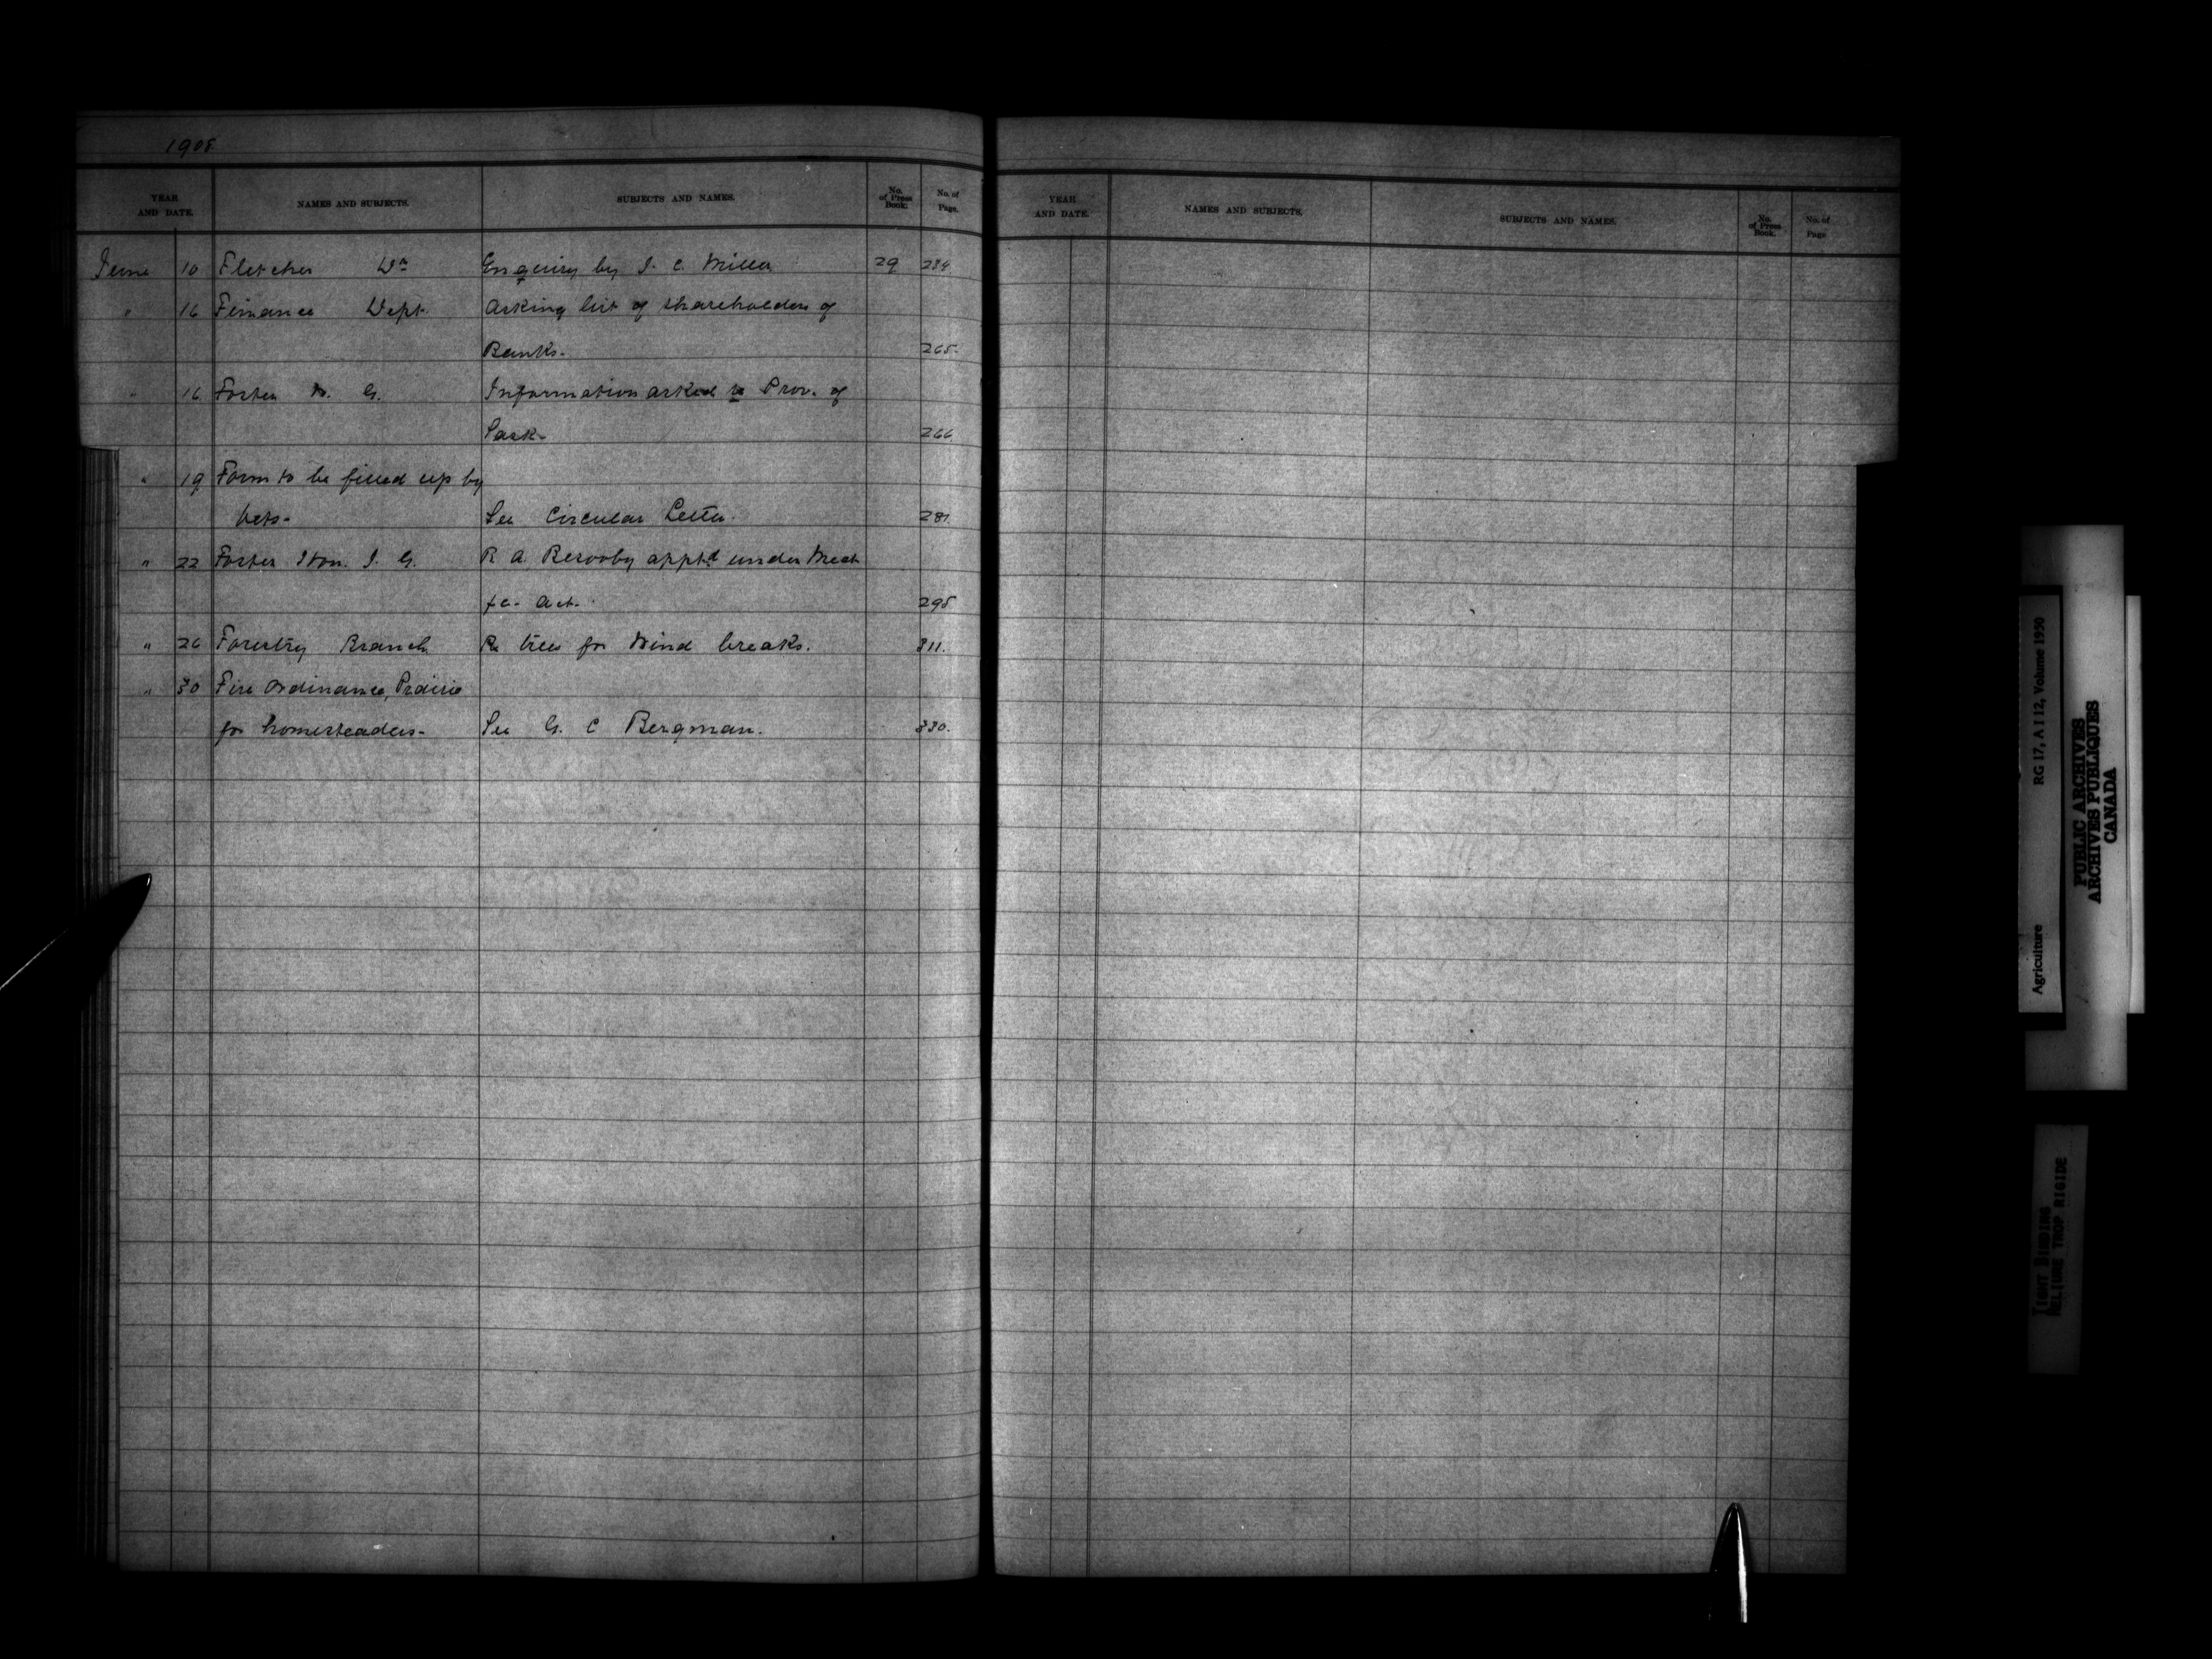 1908
YEAR AND DATE. NAMES AND SUBJECTS. SUBJECTS AND NAMES. No. of Press Book. No. of Page.
June 10 Fletcher Dr Enquiry by J. C. Miller 29 234.
" 16 Finance Dept. Asking list of shareholders of
Banks. 265.
" 16 Foster W. G. Information asked re Prov. of
Sask. 266
" 19 Form to be filled up by
Vets. See Circular Letter. 281.
" 22 Foster Hon. J. G. R A. appt.d under Meat
fc. Act. 295
" 26 Forestry Branch Re trees for Wind breaks. 311.
" 30 Fire Ordinance, Prairie
for homesteaders. See G. C Bergman. 330.
YEAR AND DATE. NAMES AND SUBJECTS. SUBJECTS AND NAMES. No. of Press Book. No. of Page
Agriculture RG 17, A I 12, Volume 1950
PUBLIC ARCHIVES
ARCHIVES PUBLIQUES
CANADA
TIGHT BINDING
RELIURE TROP RIGIDE